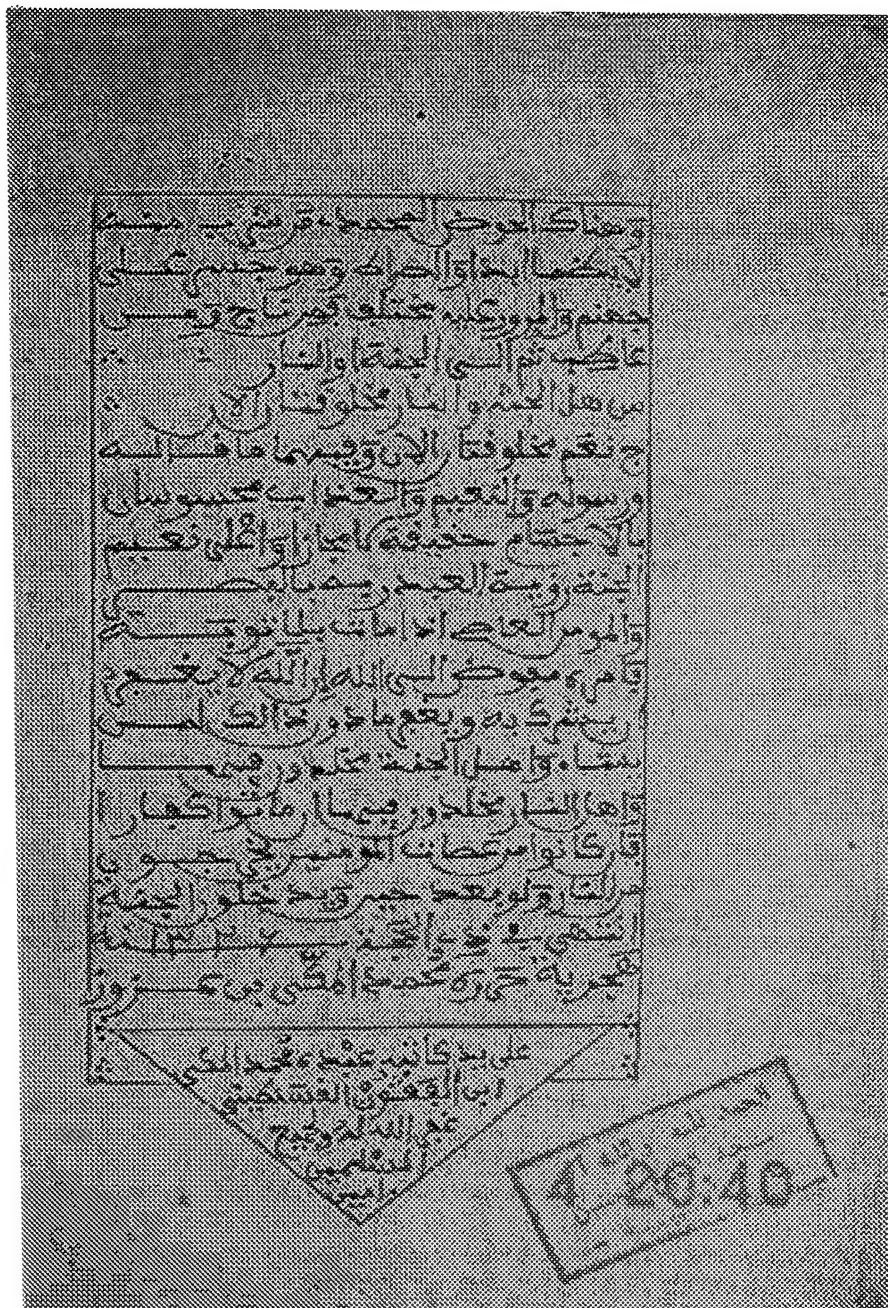 وهناك الحوض المحمدي من شرب منه
لا يظمأ ابدا والصراط وهو جسر على
جهنم والمرور عليه مختلف فمن ناج ومن
عاطب ثم الى الجنة او النار
س هل الجنة والنار مخلوقتان الان
ج نعم مخلوقتان الان وفيهما ما قال الله
ورسوله والنعيم والعذاب محسوسان
بالاجسام حقيقة لا مجازا واعلى نعيم
الجنة رؤية العبد ربه بالبصر
والمومن العاصي اذا مات بلا توبة
فامره مفوض الى الله ان الله لا يغفر
ان يشرك به ويغفر ما دون ذالك لمن
يشاء واهل الجنة مخلدون فيها
واهل النار مخلدون فيها ان ماتوا كفارا
فان كانوا من عصات المومنين يخرجون
من النار ولو بعد حين ويدخلون الجنة
انتهى في ذي الحجة سنة
هجرية حرره محمد المكي بن عزوز
على يد كاتبه عنده محمد المكي
ابن الفقون القسنطيني
غفر الله له ولجميع
المسلمين
ءامين
20:40